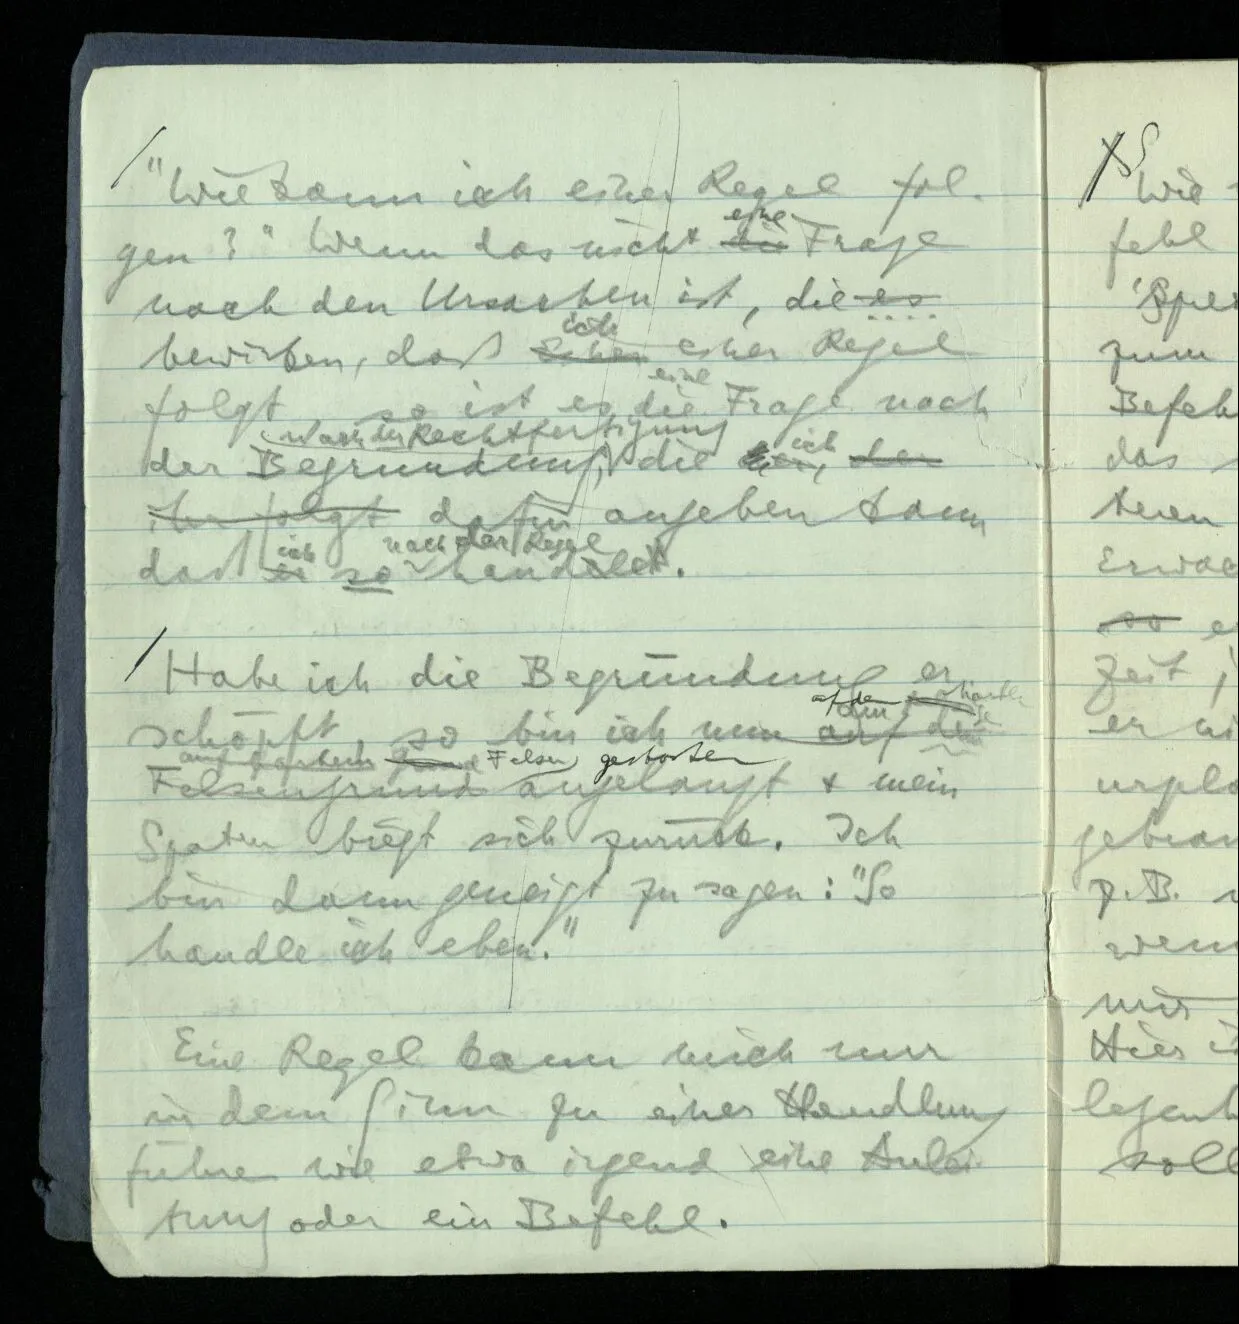 "Wie kann ich einer Regel fol-
gen?" Wenn das nicht die eine Frage
nach den Ursachen ist, die es
ich
bewirken, daß Einer einer Regel
eine
folgt, so ist es die Frage nach
nach der Rechtfertigung
der Begründung, die Einer, ich der
ihr folgt dafür angeben kann
ich nach der Regel
daß er so handelt.
Habe ich die Begründung er-
auf den
schöpft, so bin ich nun auf den
auf hartem Felsen gestoßen
Felsengrund angelangt & mein
Spaten biegt sich zurück. Ich
bin dann geneigt zu sagen: "So
handle ich eben."
Eine Regel kann mich nur
in dem Sinn zu einer Handlung
führen wie etwa irgend eine Anlei-
tung oder ein Befehl.
Wie
fehl
zum
Befeh
das
teren
Erwac
so e
Zeit,
er wi
urplö
gebrau
z.B.
wenn
mir
Hier i
legent
soll